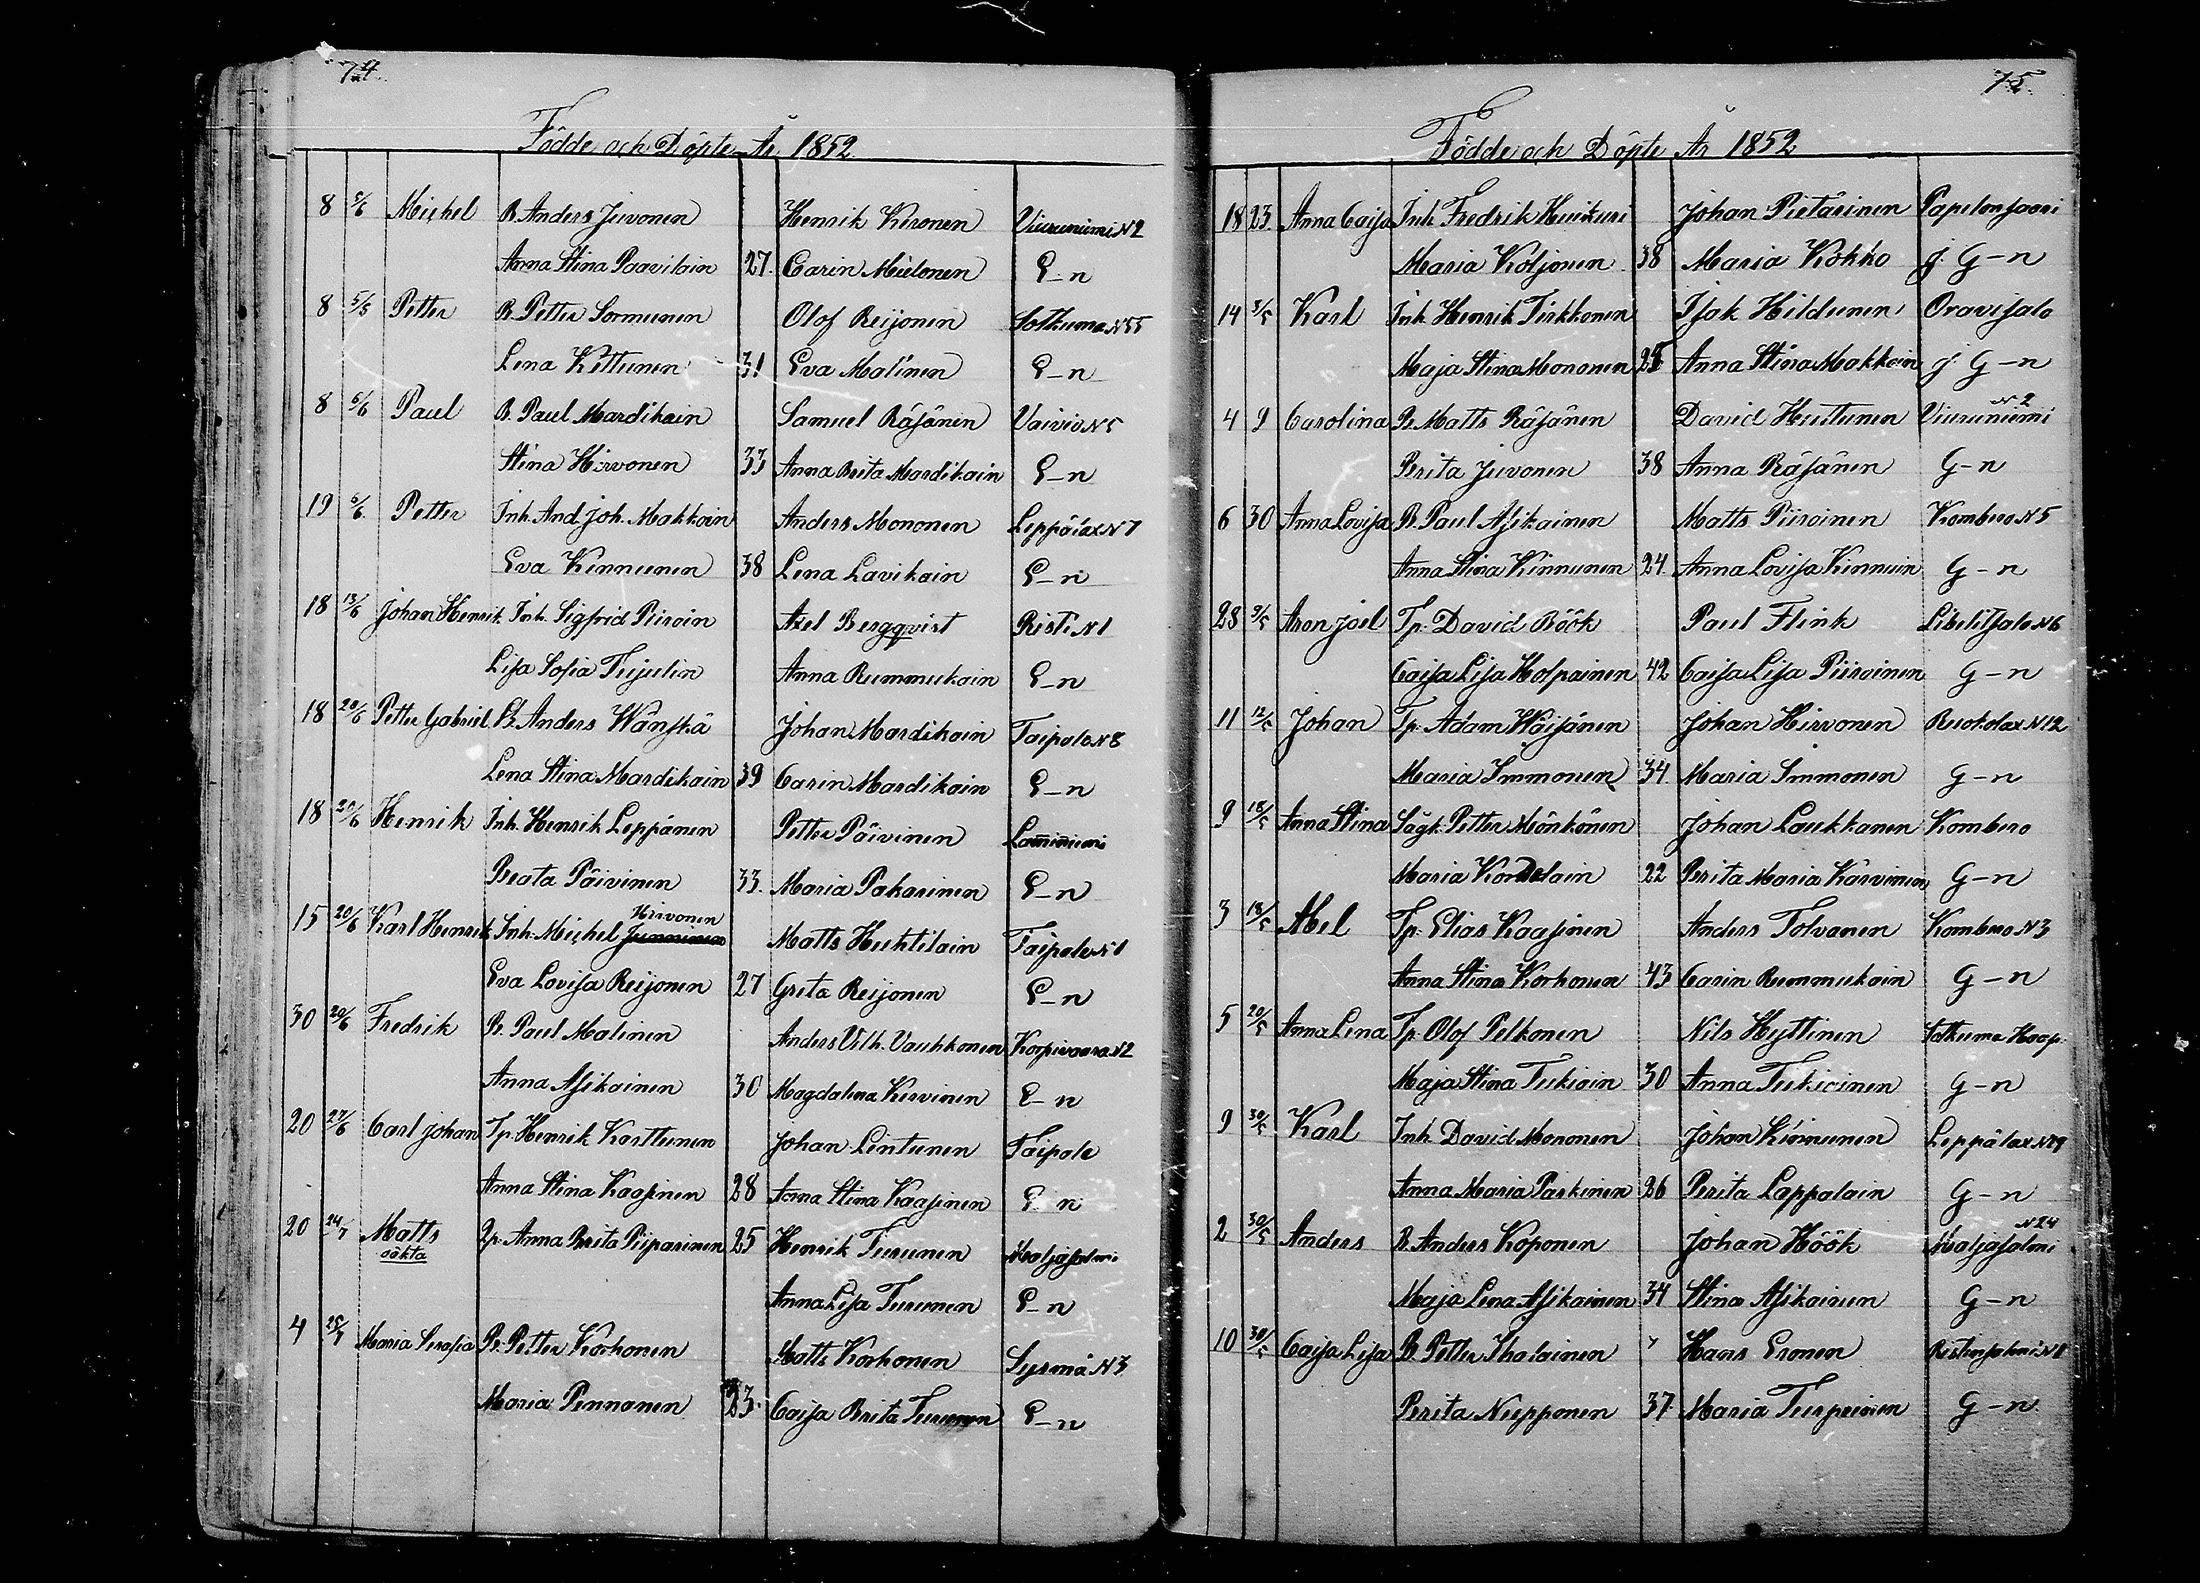 74.
Födde och Döpte År 1852
8 5/6 Michel B. Anders Juvonen Henrik Kironen Viuruniemi N2
Anna Stina Paavilain 27. Carin Mielonen G-n
8 5/5 Petter B. Petter Sormunen Olof Reijonen Sotkuma N55
Lena Kettunen 31 Eva Malinen G-n
8 6/6 Paul B. Paul Mardikain Samuel Räsänen Vaivio N5
Stina Hirvonen 33 Anna Brita Mardikain G-n
19 6/6 Petter Inh. And. Joh. Makkoin Anders Mononen Leppälax N7
Eva Kinnunen 38 Lena Lavikain G-n
18 13/6 Johan Henrik Inh. Sigfrid Piiroin Axel Bergqvist Risti N1
Lisa Sofia Tujulin Anna Rummukain G-n
18 20/6 Petter Gabriel B. Anders Wänskä Johan Mardikain Taipale N8
Lena Stina Mardikain 39 Carin Mardikain G-n
18 20/6 Henrik Inh. Henrik Leppänen Petter Päivinen Lamminiemi
Beata Päivinen 33. Maria Pakarinen G-n
Hirvonen
15 20/6 Karl Henrik Inh. Michel Matts Huhtilain Taipale N1
Eva Lovisa Reijonen 27 Greta Reijonen G-n
30 20/6 Fredrik B. Paul Malinen Anders Vilh. Vauhkonen Korpivaara N2
Anna Asikainen 30 Magdalena Kervinen G-n
20 27/6 Carl Johan Tp. Henrik Karttunen Johan Lintunen Taipale
Anna Stina Kaasinen 28 Anna Stina Kaasinen G n
20 24/7 Matts Anna Brita Piiparinen 25 Henrik Turunen Maljasalmi
oäkta
Anna Lisa Turunen G-n
4 25/7 Maria Serafia B. Petter Korhonen Matts Korhonen Sysmä N3
Maria Pennanen 23. Caisa Brita Turunen G-n
75.
Födde och Döpte År 1852
18 23. Anna Caisa Inh. Fredrik Huikuri Johan Pietärinen Papelonsaari
Maria Koljonen 38 Maria Kokko j. G-n
14 3/5 Karl Inh. Henrik Tirkkonen Isak Hildunen Oravisalo
Maja Stina Mononen 25 Anna Stina Makkoin j. G-n
N2
4 9 Carolina B. Matts Räsänen David Huttunen Viuruniemi
Brita Juvonen 38 Anna Räsänen G-n
6 30 Anna Lovisa B. Paul Asikainen Matts Piiroinen Kombero N5
Anna Stina Kinnunen 24 Anna Lovisa Kinnuin G-n
28 9/5 Aron Joel Tp. David Böök Paul Flink Libelitsalo N6
Caisa Lisa Holpainen 42 Caisa Lisa Piiroinen G-n
11 12/5 Johan Tp. Adam Wäisänen Johan Hirvonen Ruokolax N12
Maria Immonen 34. Maria Immonen G-n
9 18/5 Anna Stina Sågk. Petter Mönkönen Johan Laukkanen Kombero
Maria Kondelain 22 Brita Maria Kärvinen G-n
3 18/5 Abel Tp. Elias Kaasinen Anders Tolvanen Kombero N3
Anna Stina Korhonen 43 Carin Rummukain G-n
5 20/5 Anna Lena Tp. Olof Pelkonen Nils Hyttinen Sotkuma
Maja Stina Tukiain 30 Anna Tukiainen G-n
9 30/5 Karl Inh. David Mononen Johan Kinnunen Leppälax
Anna Maria Parkinen 26 Brita Lappalain G-n
N24
2 30/5 Anders B. Anders Koponen Johan Höök Maljasalmi
Maja Lena Asikainen 34 Stina Asikainen G-n
10 30/5 Caisa Lisa B. Petter Ihalainen Hans Eronen
Brita Nupponen 37 Maria Turpeinen G-n